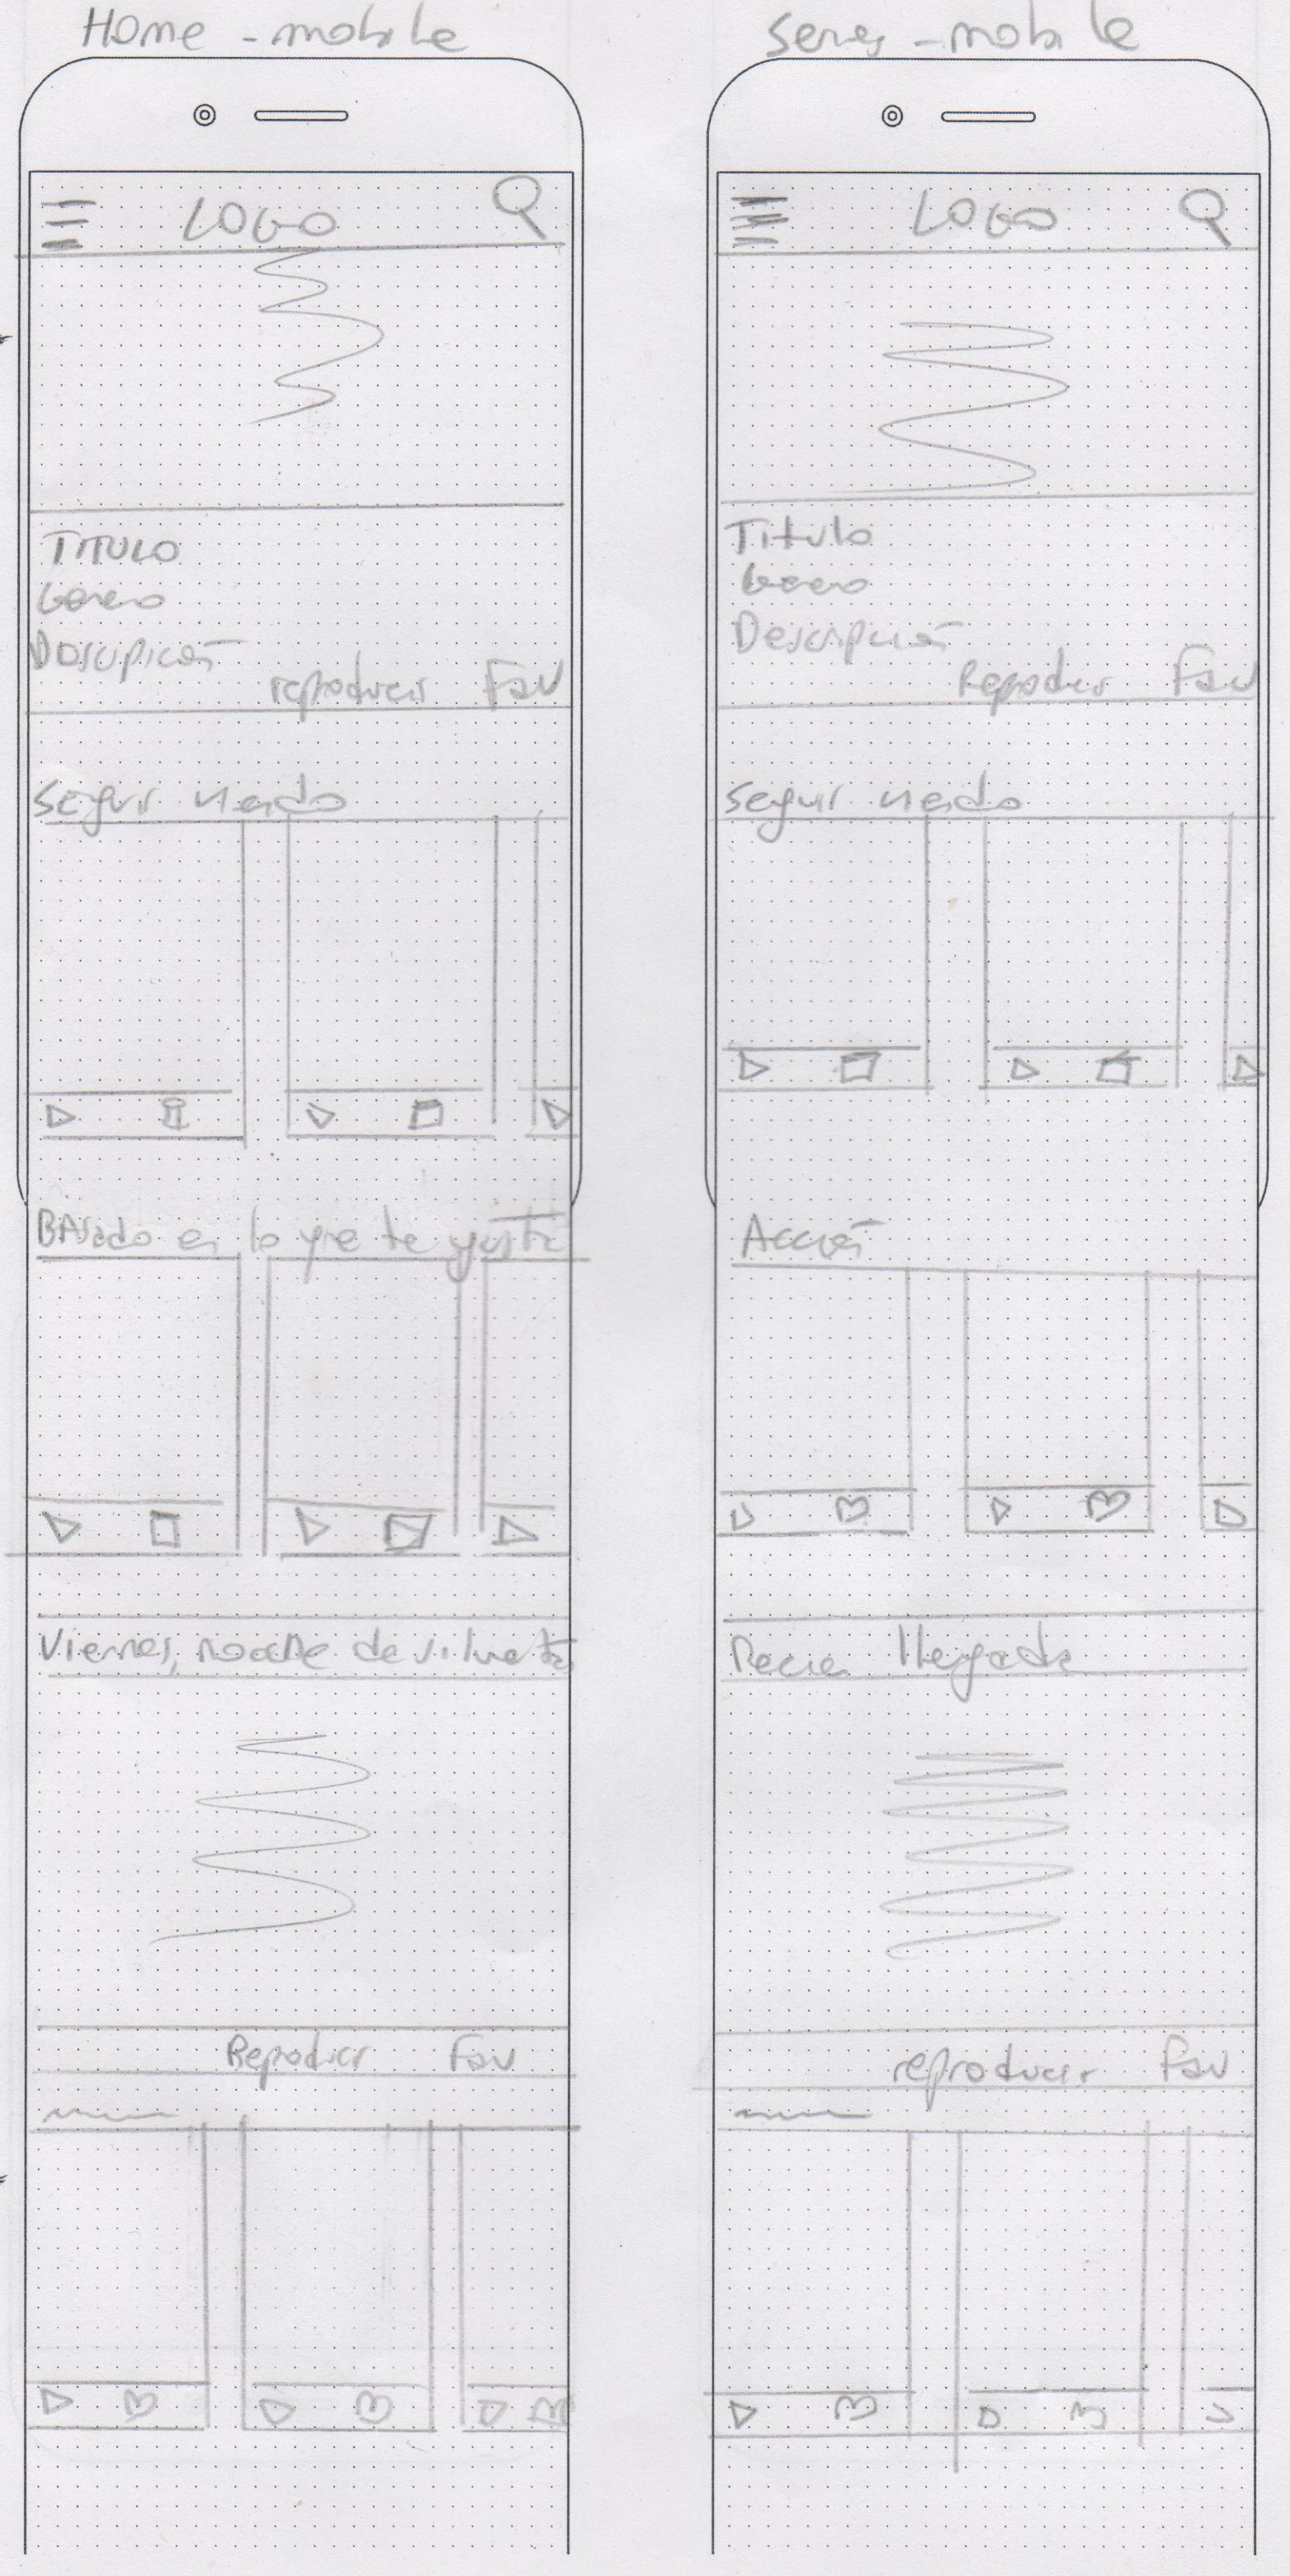 Home - mobile
LOGO
TITULO
Genero
Descripción
reproducir Fav
Seguir viendo
BAsado en lo que te gusta
Viernes, noche de
Reproducir Fav
Series - mobile
LOGO
Titulo
Genero
Descripción
Reproducir Fav
Seguir viendo
Acción
Recien llegada
reproducir Fav